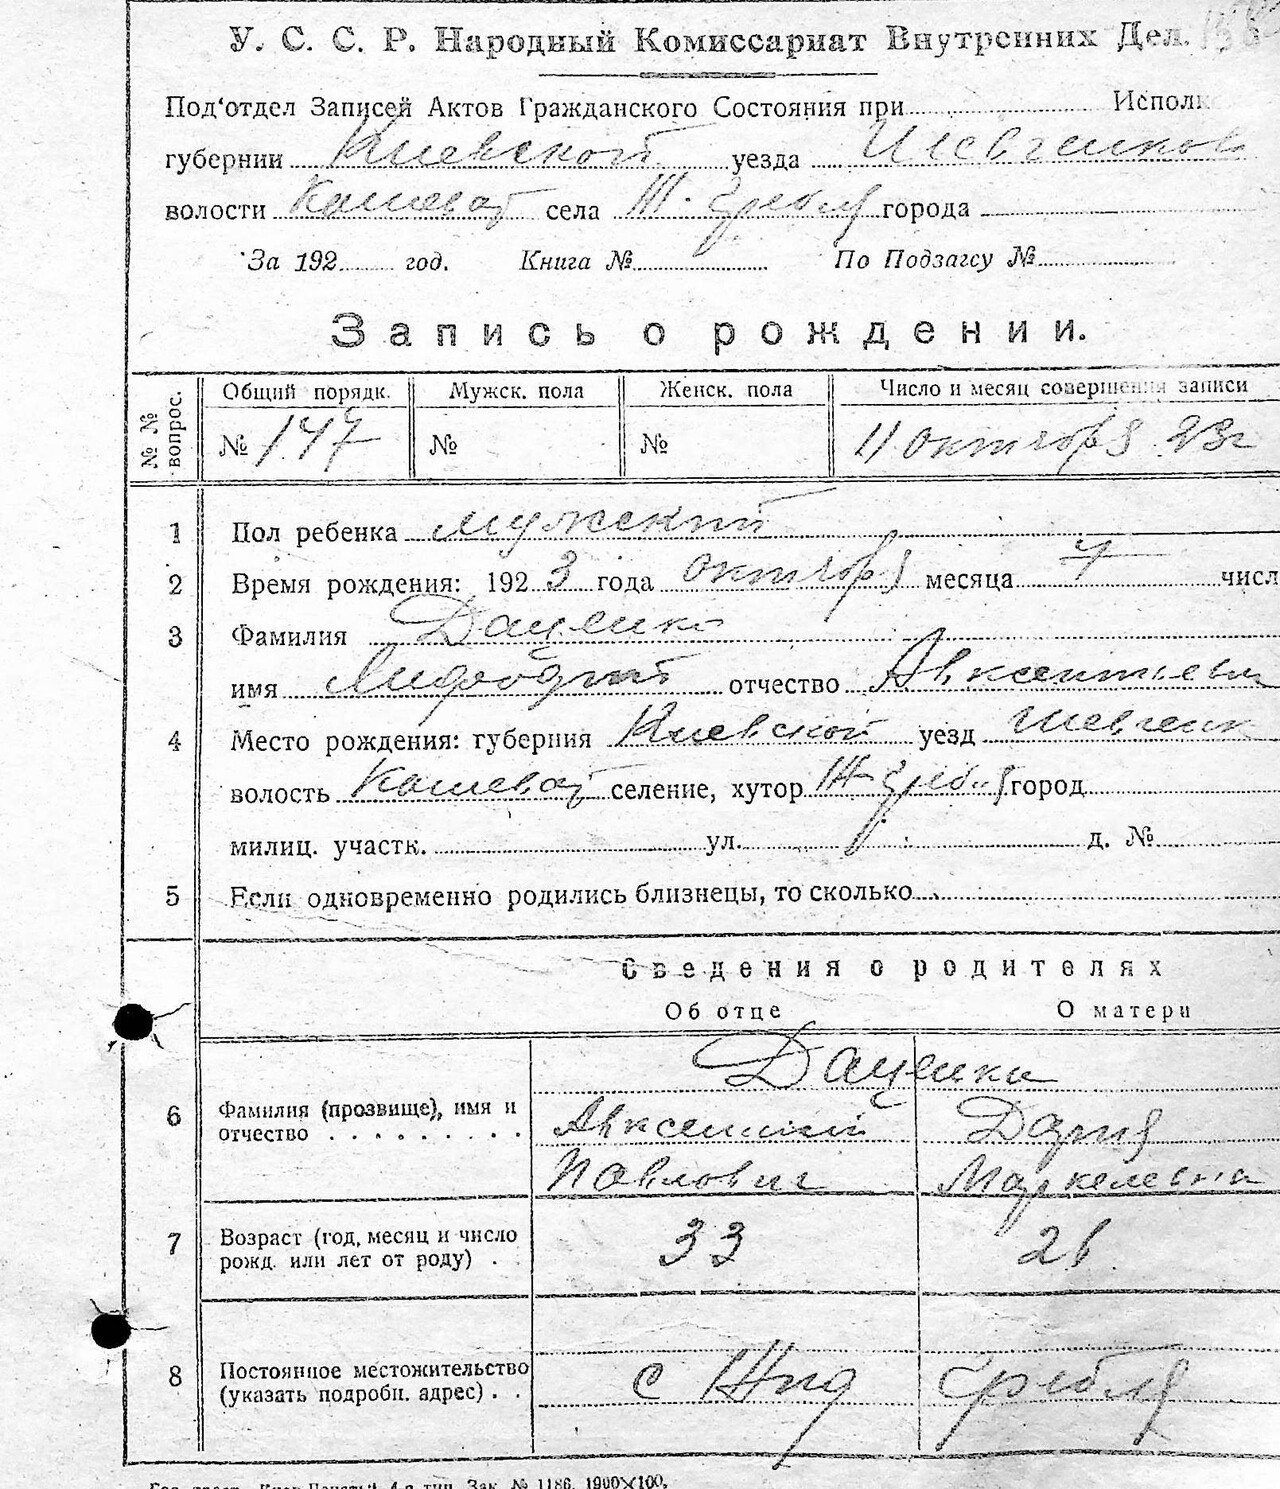 У. С. С. Р. Народный Комиссариат Внутренних Дел.
Под'отдел Записей Актов Гражданского Состояния при Исполк
губернии Киевской уезда Шевченков
волости Кошеват села Ж. Гребля города
За 192 год. Книга № По Подзагсу №
Запись о рождении.
№№ вопрос. Общий порядк. Мужск. пола Женск. пола Число и месяц совершения записи
№ 147 № № 11 октября 23г
1 Пол ребенка мужский
2 Время рождения: 1923 года октября месяца 7 числ
3 Фамилия Даценко
имя отчество Авксентьеви
4 Место рождения: губерния Киевской уезд Шевченк
волость Кошеват селение, хутор Ж Гребля город
милиц. участк. ул. д. №
5 Если одновременно родились близнецы, то сколько
Сведения о родителях
Об отце О матери
Даценко
6 Фамилия (прозвище), имя и отчество Авксентий Дария
Павлович Маркеловна
7 Возраст (год, месяц и число рожд. или лет от роду) 33 26
8 Постоянное местожительство (указать подробн. адрес) с Жид Гребля
4-я тип. Зак. № 1186. 1900×100.